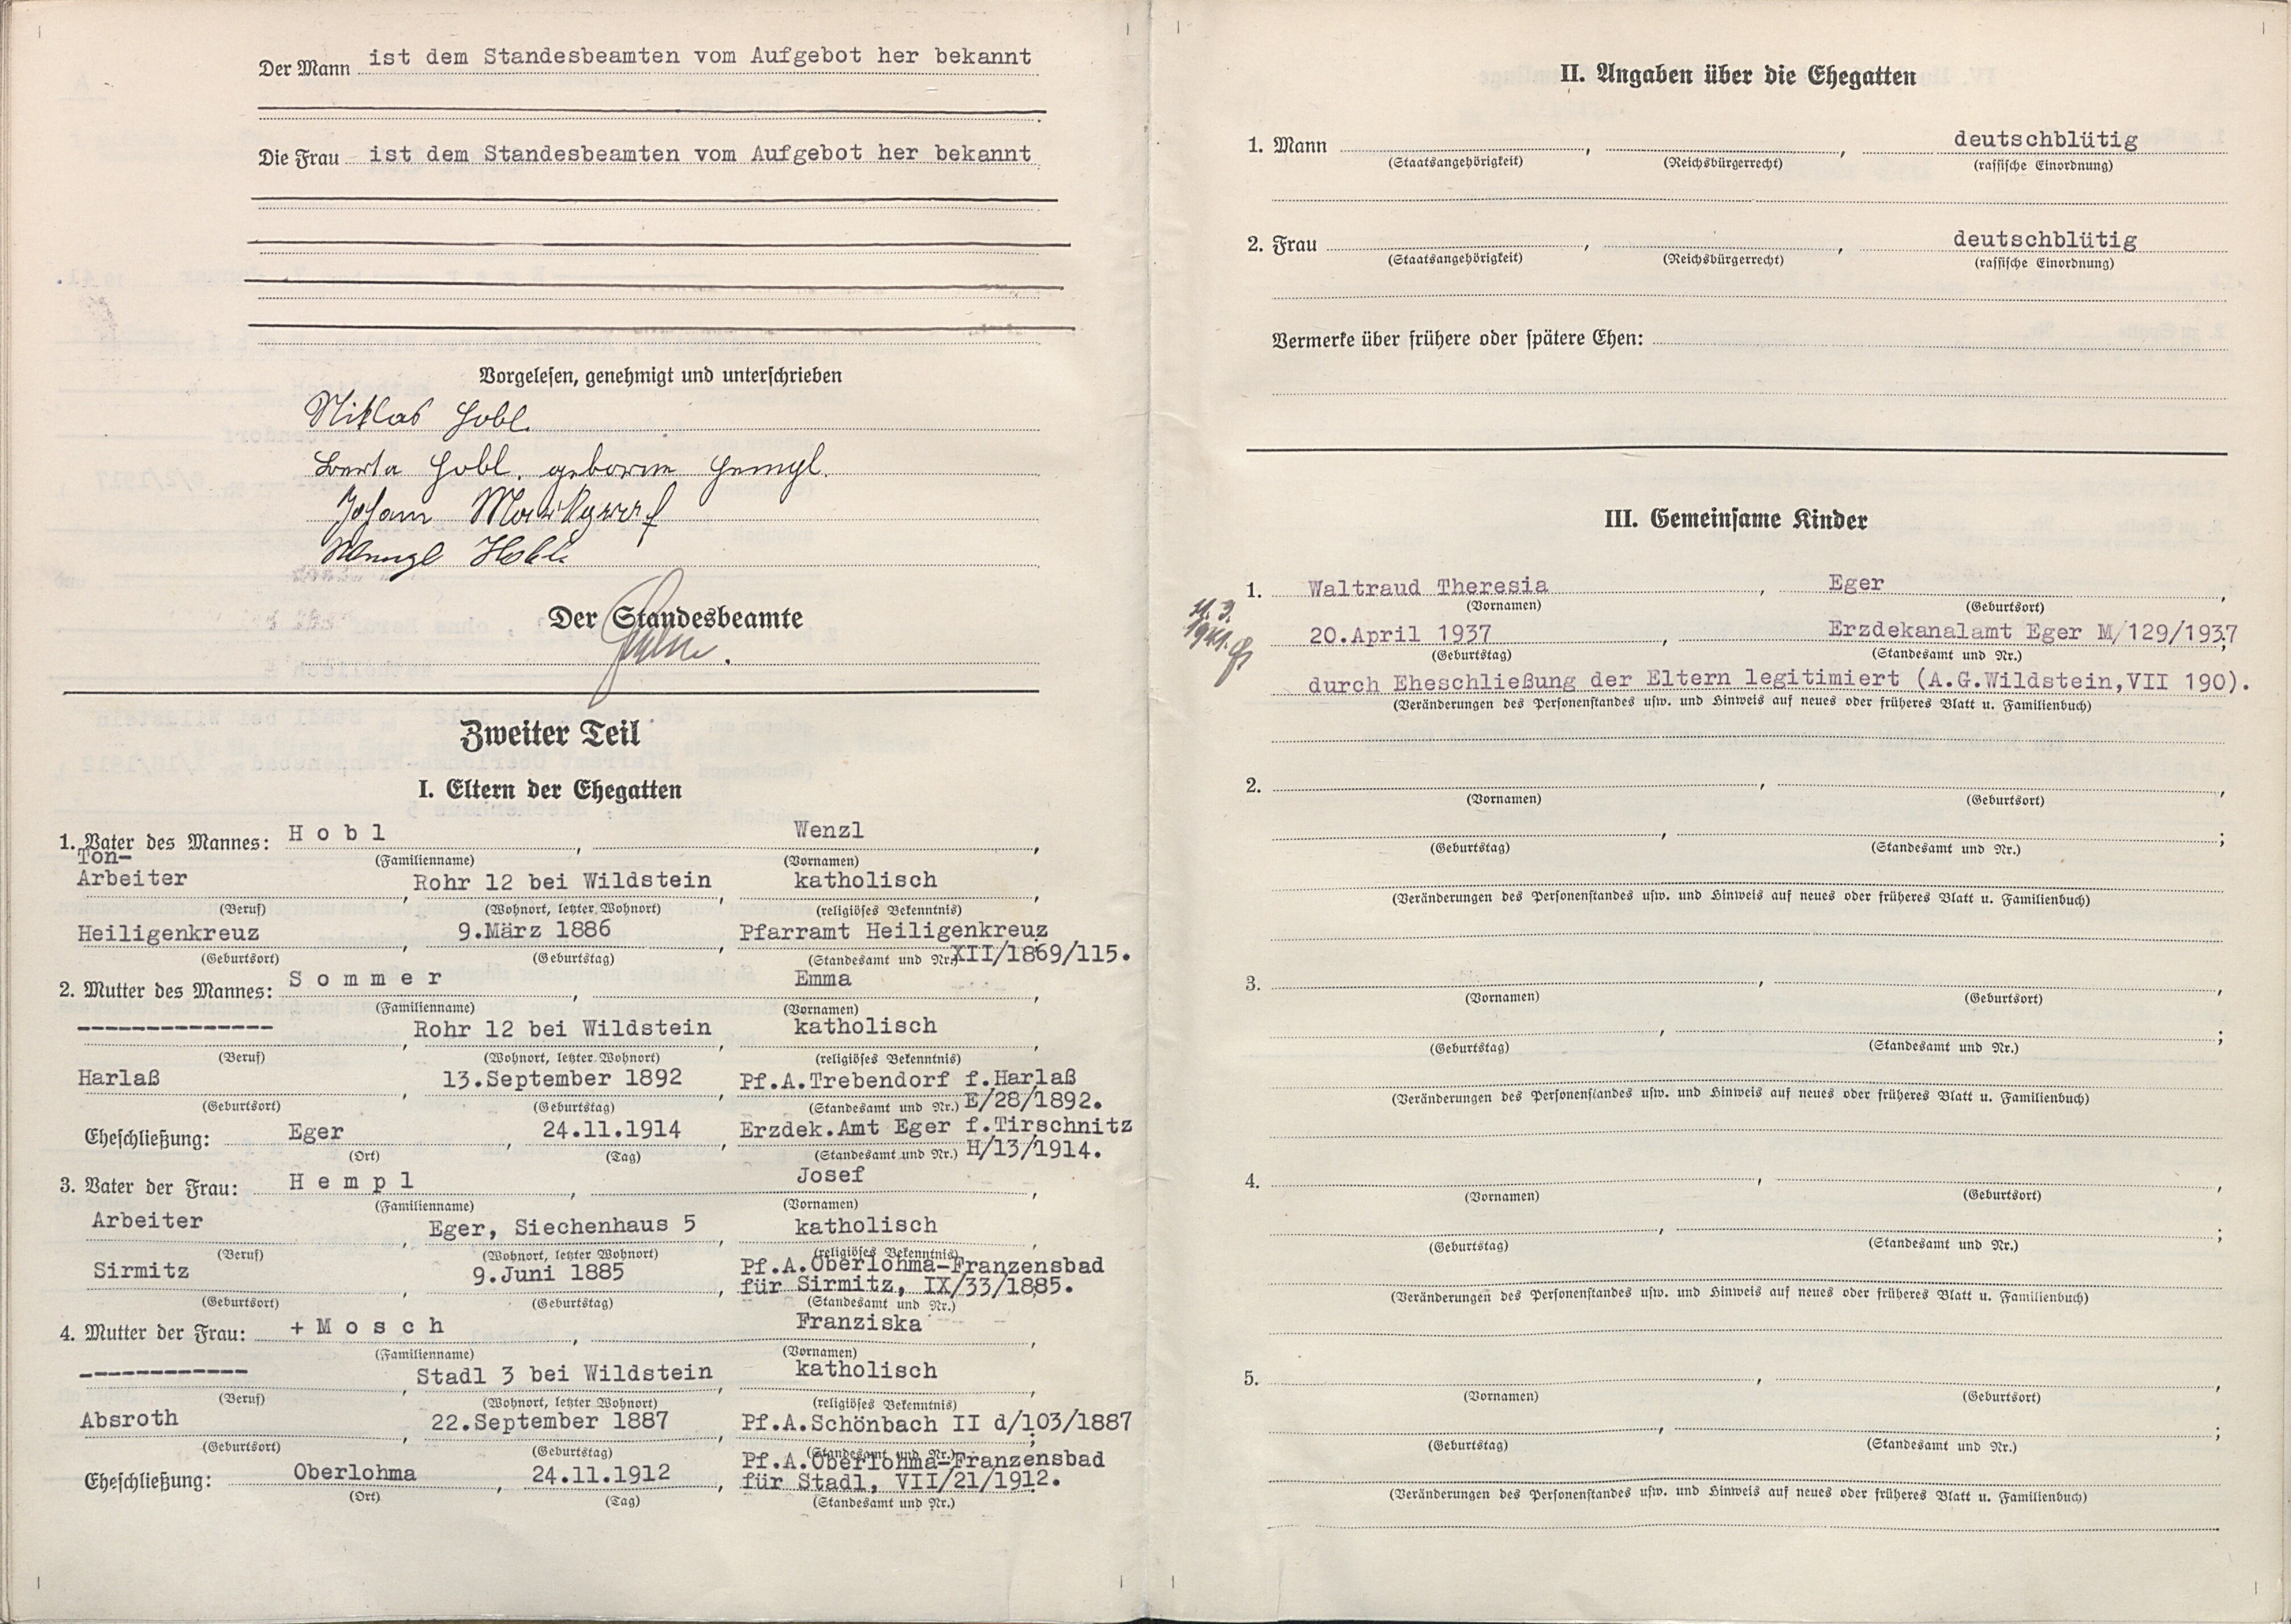 Der Mann ist dem Standesbeamten vom Aufgebot her bekannt
Die Frau ist dem Standesbeamten vom Aufgebot her bekannt
Vorgelesen, genehmigt und unterschrieben
Niklas Hobl.
Berta Hobl, geborene Hempl.
Johann Markgraf
Wenzl Hobl.
Der Standesbeamte
Zweiter Teil
I. Eltern der Ehegatten
1. Vater des Mannes: Hobl, Wenzl,
(Familienname) (Vornamen)
Ton-
Arbeiter, Rohr 12 bei Wildstein, katholisch,
(Beruf) (Wohnort, letzter Wohnort) (religiöses Bekenntnis)
Heiligenkreuz, 9.März 1886, Pfarramt Heiligenkreuz;
(Geburtsort) (Geburtstag) (Standesamt und Nr.) XII/1869/115.
2. Mutter des Mannes: Sommer, Emma,
(Familienname) (Vornamen)
--------------, Rohr 12 bei Wildstein, katholisch,
(Beruf) (Wohnort, letzter Wohnort) (religiöses Bekenntnis)
Harlaß, 13.September 1892, Pf.A.Trebendorf f.Harlaß
(Geburtsort) (Geburtstag) (Standesamt und Nr.) E/28/1892.
Eheschließung: Eger, 24.11.1914, Erzdek.Amt Eger f.Tirschnitz
(Ort) (Tag) (Standesamt und Nr.) H/13/1914.
3. Vater der Frau: Hempl, Josef,
(Familienname) (Vornamen)
Arbeiter, Eger, Siechenhaus 5, katholisch,
(Beruf) (Wohnort, letzter Wohnort) (religiöses Bekenntnis)
Sirmitz, 9.Juni 1885, Pf.A.Oberlohma-Franzensbad
für Sirmitz, IX/33/1885.
(Geburtsort) (Geburtstag) (Standesamt und Nr.)
4. Mutter der Frau: +Mosch, Franziska,
(Familienname) (Vornamen)
------------, Stadl 3 bei Wildstein, katholisch,
(Beruf) (Wohnort, letzter Wohnort) (religiöses Bekenntnis)
Absroth, 22.September 1887, Pf.A.Schönbach II d/103/1887;
(Geburtsort) (Geburtstag) (Standesamt und Nr.)
Pf.A.Oberlohma-Franzensbad
Eheschließung: Oberlohma, 24.11.1912, für Stadl, VII/21/1912.
(Ort) (Tag) (Standesamt und Nr.)
II. Angaben über die Ehegatten
1. Mann , , deutschblütig
(Staatsangehörigkeit) (Reichsbürgerrecht) (rassische Einordnung)
2. Frau , , deutschblütig
(Staatsangehörigkeit) (Reichsbürgerrecht) (rassische Einordnung)
Vermerke über frühere oder spätere Ehen:
III. Gemeinsame Kinder
1. Waltraud Theresia, Eger,
(Vornamen) (Geburtsort)
1941.
20.April 1937, Erzdekanalamt Eger M/129/1937;
(Geburtstag) (Standesamt und Nr.)
durch Eheschließung der Eltern legitimiert (A.G.Wildstein,VII 190).
(Veränderungen des Personenstandes usw. und Hinweis auf neues oder früheres Blatt u. Familienbuch)
2. , ,
(Vornamen) (Geburtsort)
, ;
(Geburtstag) (Standesamt und Nr.)
(Veränderungen des Personenstandes usw. und Hinweis auf neues oder früheres Blatt u. Familienbuch)
3. , ,
(Vornamen) (Geburtsort)
, ;
(Geburtstag) (Standesamt und Nr.)
(Veränderungen des Personenstandes usw. und Hinweis auf neues oder früheres Blatt u. Familienbuch)
4. , ,
(Vornamen) (Geburtsort)
, ;
(Geburtstag) (Standesamt und Nr.)
(Veränderungen des Personenstandes usw. und Hinweis auf neues oder früheres Blatt u. Familienbuch)
5. , ,
(Vornamen) (Geburtsort)
, ;
(Geburtstag) (Standesamt und Nr.)
(Veränderungen des Personenstandes usw. und Hinweis auf neues oder früheres Blatt u. Familienbuch)